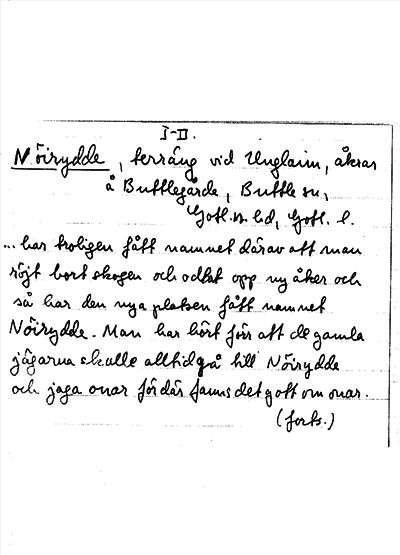 I-II.
Nöirydde, terräng vid Unglaim, åkrar
å Buttlegårde, Buttle sn,
Gotl.n. hd, Gotl. l.
... har troligen fått namnet därav att man
röjt bort skogen och odlat opp ny åker och
så har den nya platsen fått namnet
Nöirydde. Man har hört förr att de gamla
jägarna skulle alltid gå till Nöirydde
och jaga orrar för där fanns det gott om orrar.
(forts.)